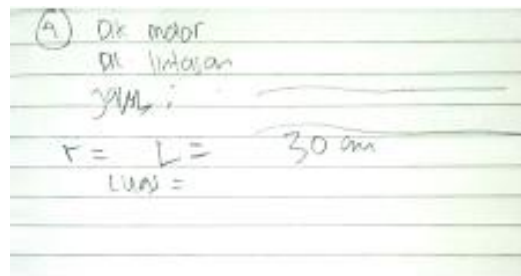 4) Dk motor
Dk lintasan
r = L = 30 cm
Luas =